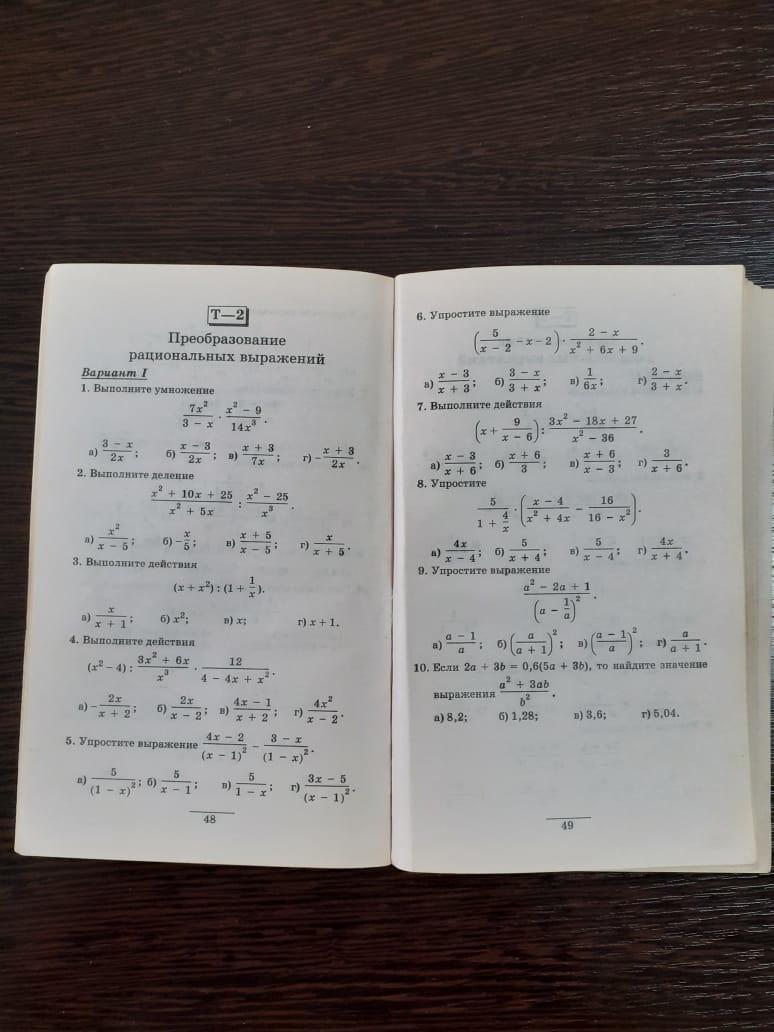 Т—2
Преобразование
рациональных выражений
Вариант I
1. Выполните умножение
7x²/(3 − x) · (x² − 9)/(14x³).
а) (3 − x)/(2x); б) (x − 3)/(2x); в) (x + 3)/(7x); г) −(x + 3)/(2x).
2. Выполните деление
(x² + 10x + 25)/(x² + 5x) : (x² − 25)/x³.
а) x²/(x − 5); б) −x/5; в) (x + 5)/(x − 5); г) x/(x + 5).
3. Выполните действия
(x + x²) : (1 + 1/x).
а) x/(x + 1); б) x²; в) x; г) x + 1.
4. Выполните действия
(x² − 4) : (3x² + 6x)/x³ · 12/(4 − 4x + x²).
а) −2x/(x + 2); б) 2x/(x − 2); в) (4x − 1)/(x + 2); г) 4x²/(x − 2).
5. Упростите выражение (4x − 2)/(x − 1)² − (3 − x)/(1 − x)².
а) 5/(1 − x)²; б) 5/(x − 1); в) 5/(1 − x); г) (3x − 5)/(x − 1)².
48
6. Упростите выражение
(5/(x − 2) − x − 2) · (2 − x)/(x² + 6x + 9).
а) (x − 3)/(x + 3); б) (3 − x)/(3 + x); в) 1/(6x); г) (2 − x)/(3 + x).
7. Выполните действия
(x + 9/(x − 6)) : (3x² − 18x + 27)/(x² − 36).
а) (x − 3)/(x + 6); б) (x + 6)/3; в) (x + 6)/(x − 3); г) 3/(x + 6).
8. Упростите
5/(1 + 4/x) · ((x − 4)/(x² + 4x) − 16/(16 − x²)).
а) 4x/(x − 4); б) 5/(x + 4); в) 5/(x − 4); г) 4x/(x + 4).
9. Упростите выражение
(a² − 2a + 1)/(a − 1/a)².
а) (a − 1)/a; б) (a/(a + 1))²; в) ((a − 1)/a)²; г) a/(a + 1).
10. Если 2a + 3b = 0,6(5a + 3b), то найдите значение
выражения (a² + 3ab)/b².
а) 8,2; б) 1,28; в) 3,6; г) 5,04.
49